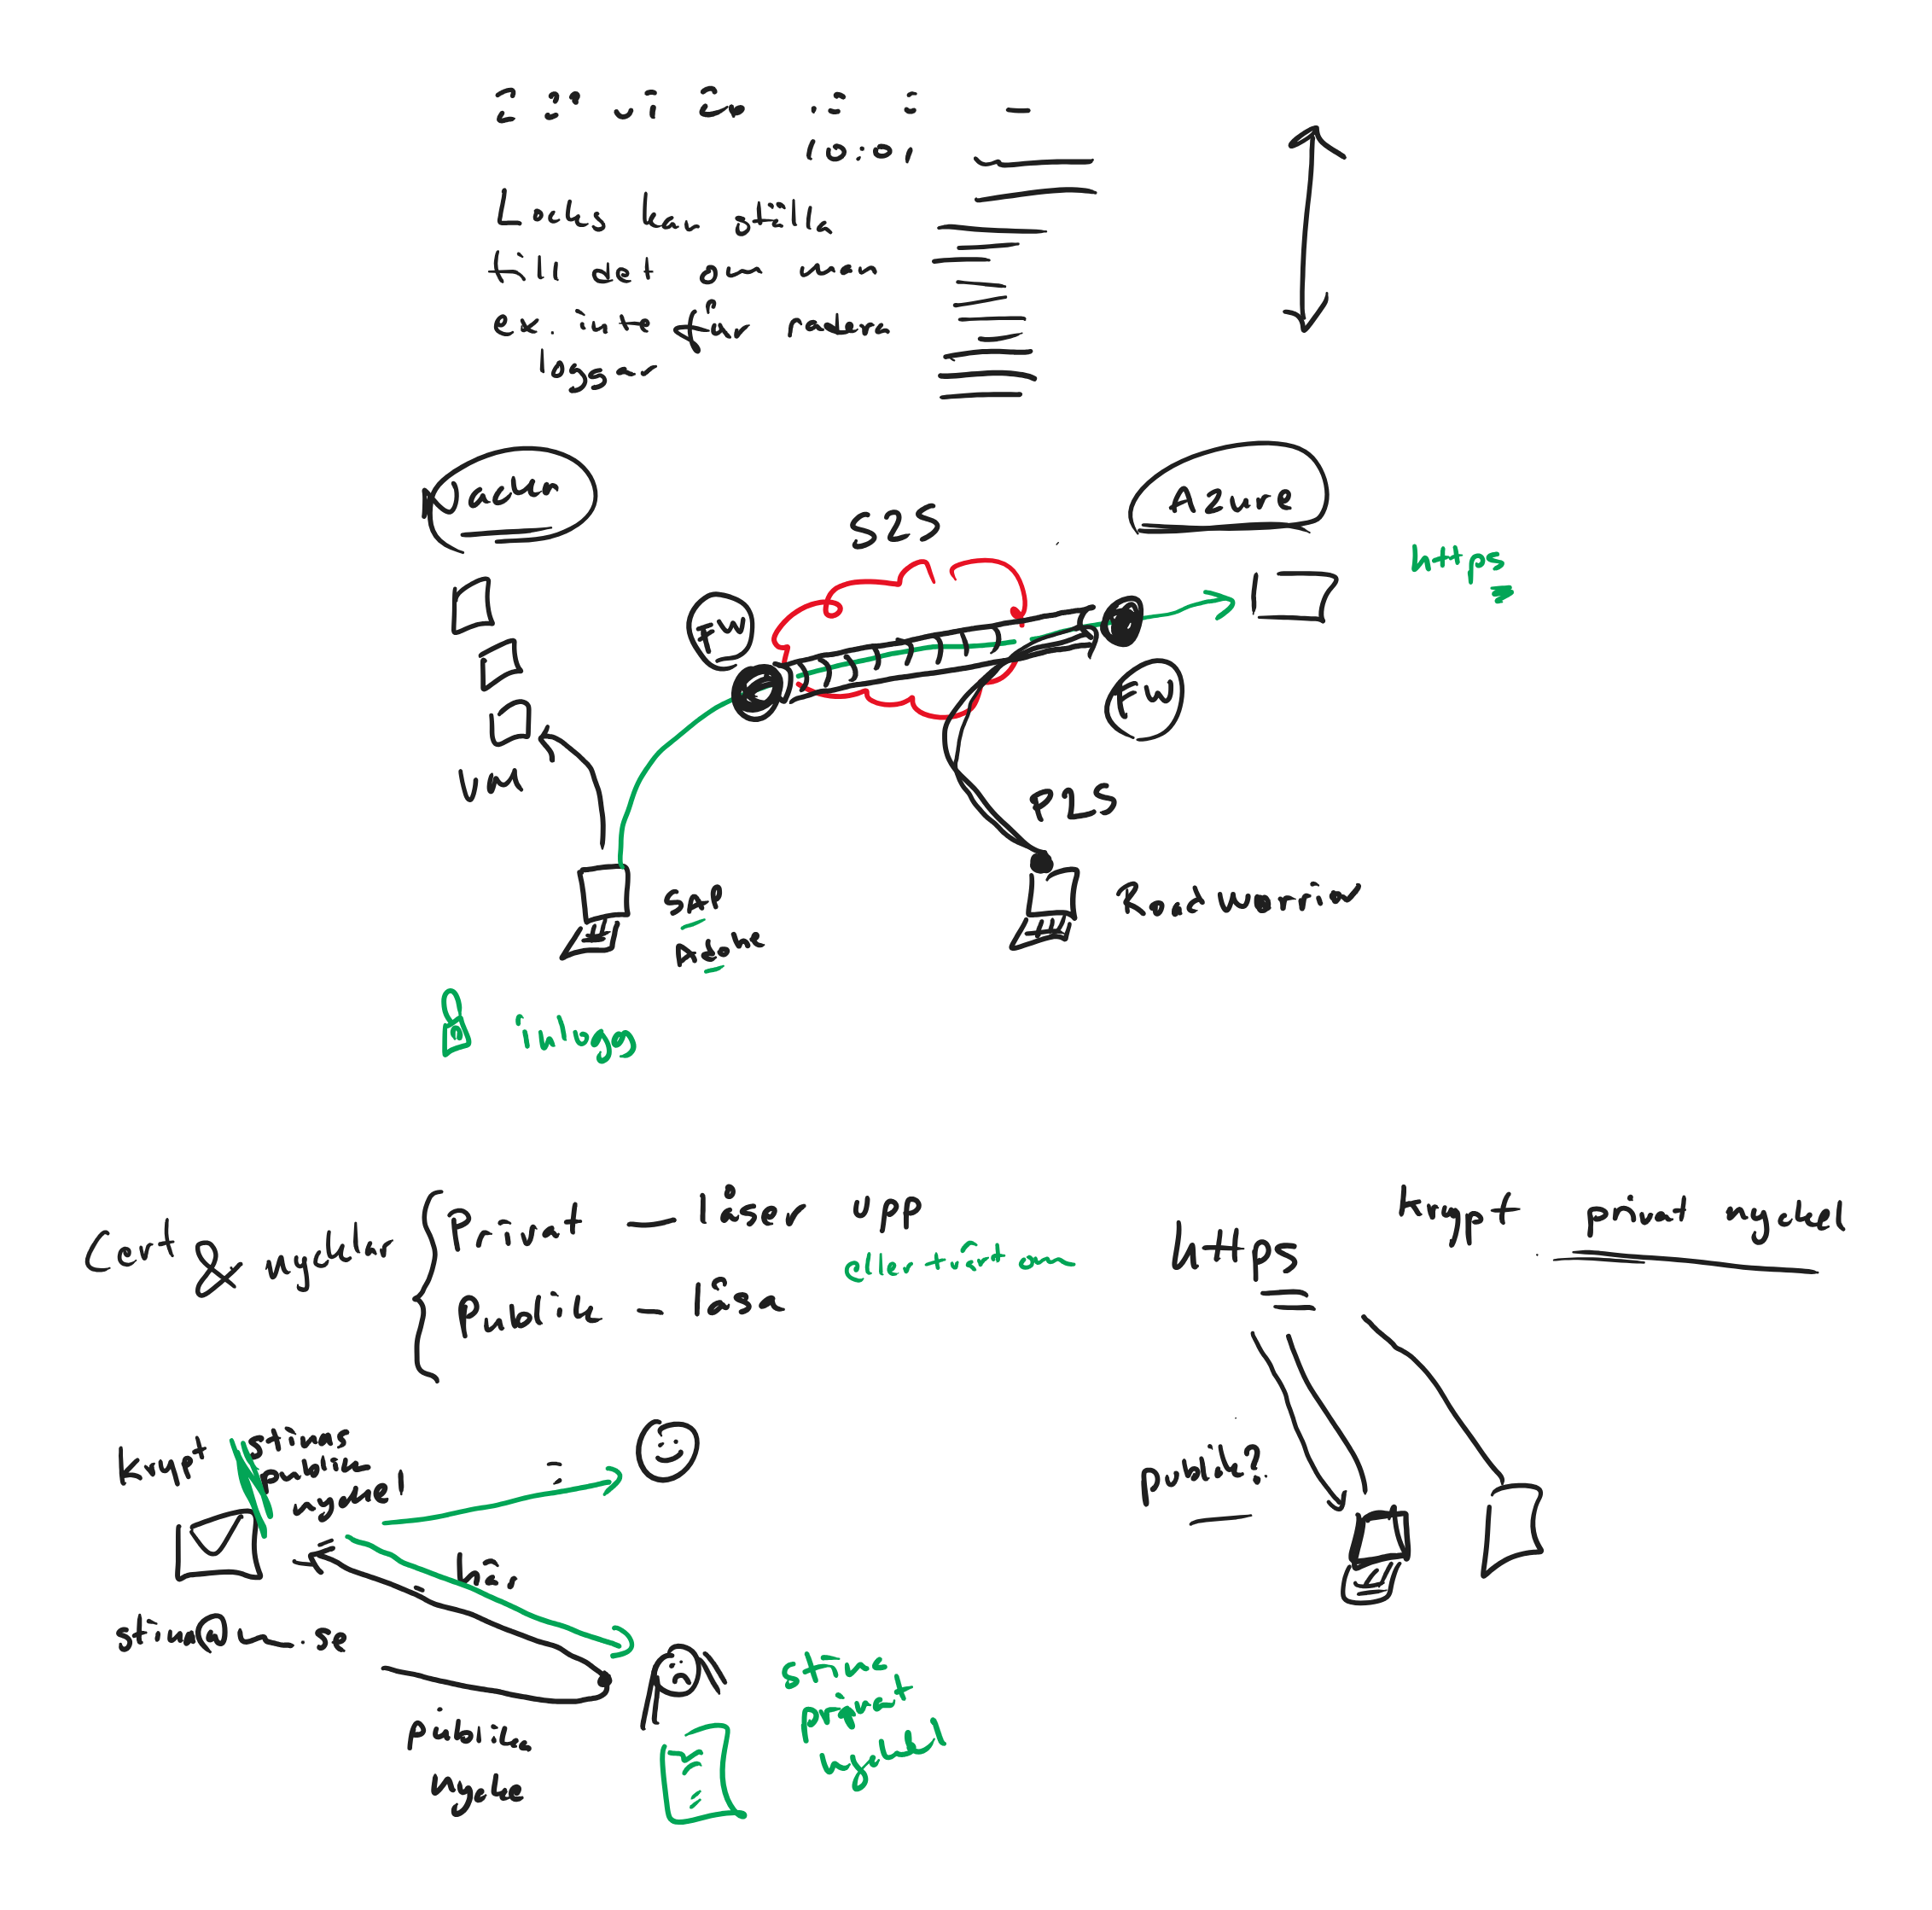 vi
10:01
Locks kan ställa
till det om man
ex. inte får radera
loggar
Nacka
Azure
S2S
https
FW
FW
VM
P2S
SAP
Adobe
Road warrior
inlogg
Cert & nycklar
Privat — låser upp
eller tvärt om
Publik — låsa
https
krypt privat nyckel
krypt stinas
publika
nyckel
publik?
här
stina@ .se
publika
nycke
stinas
privat
nyckel